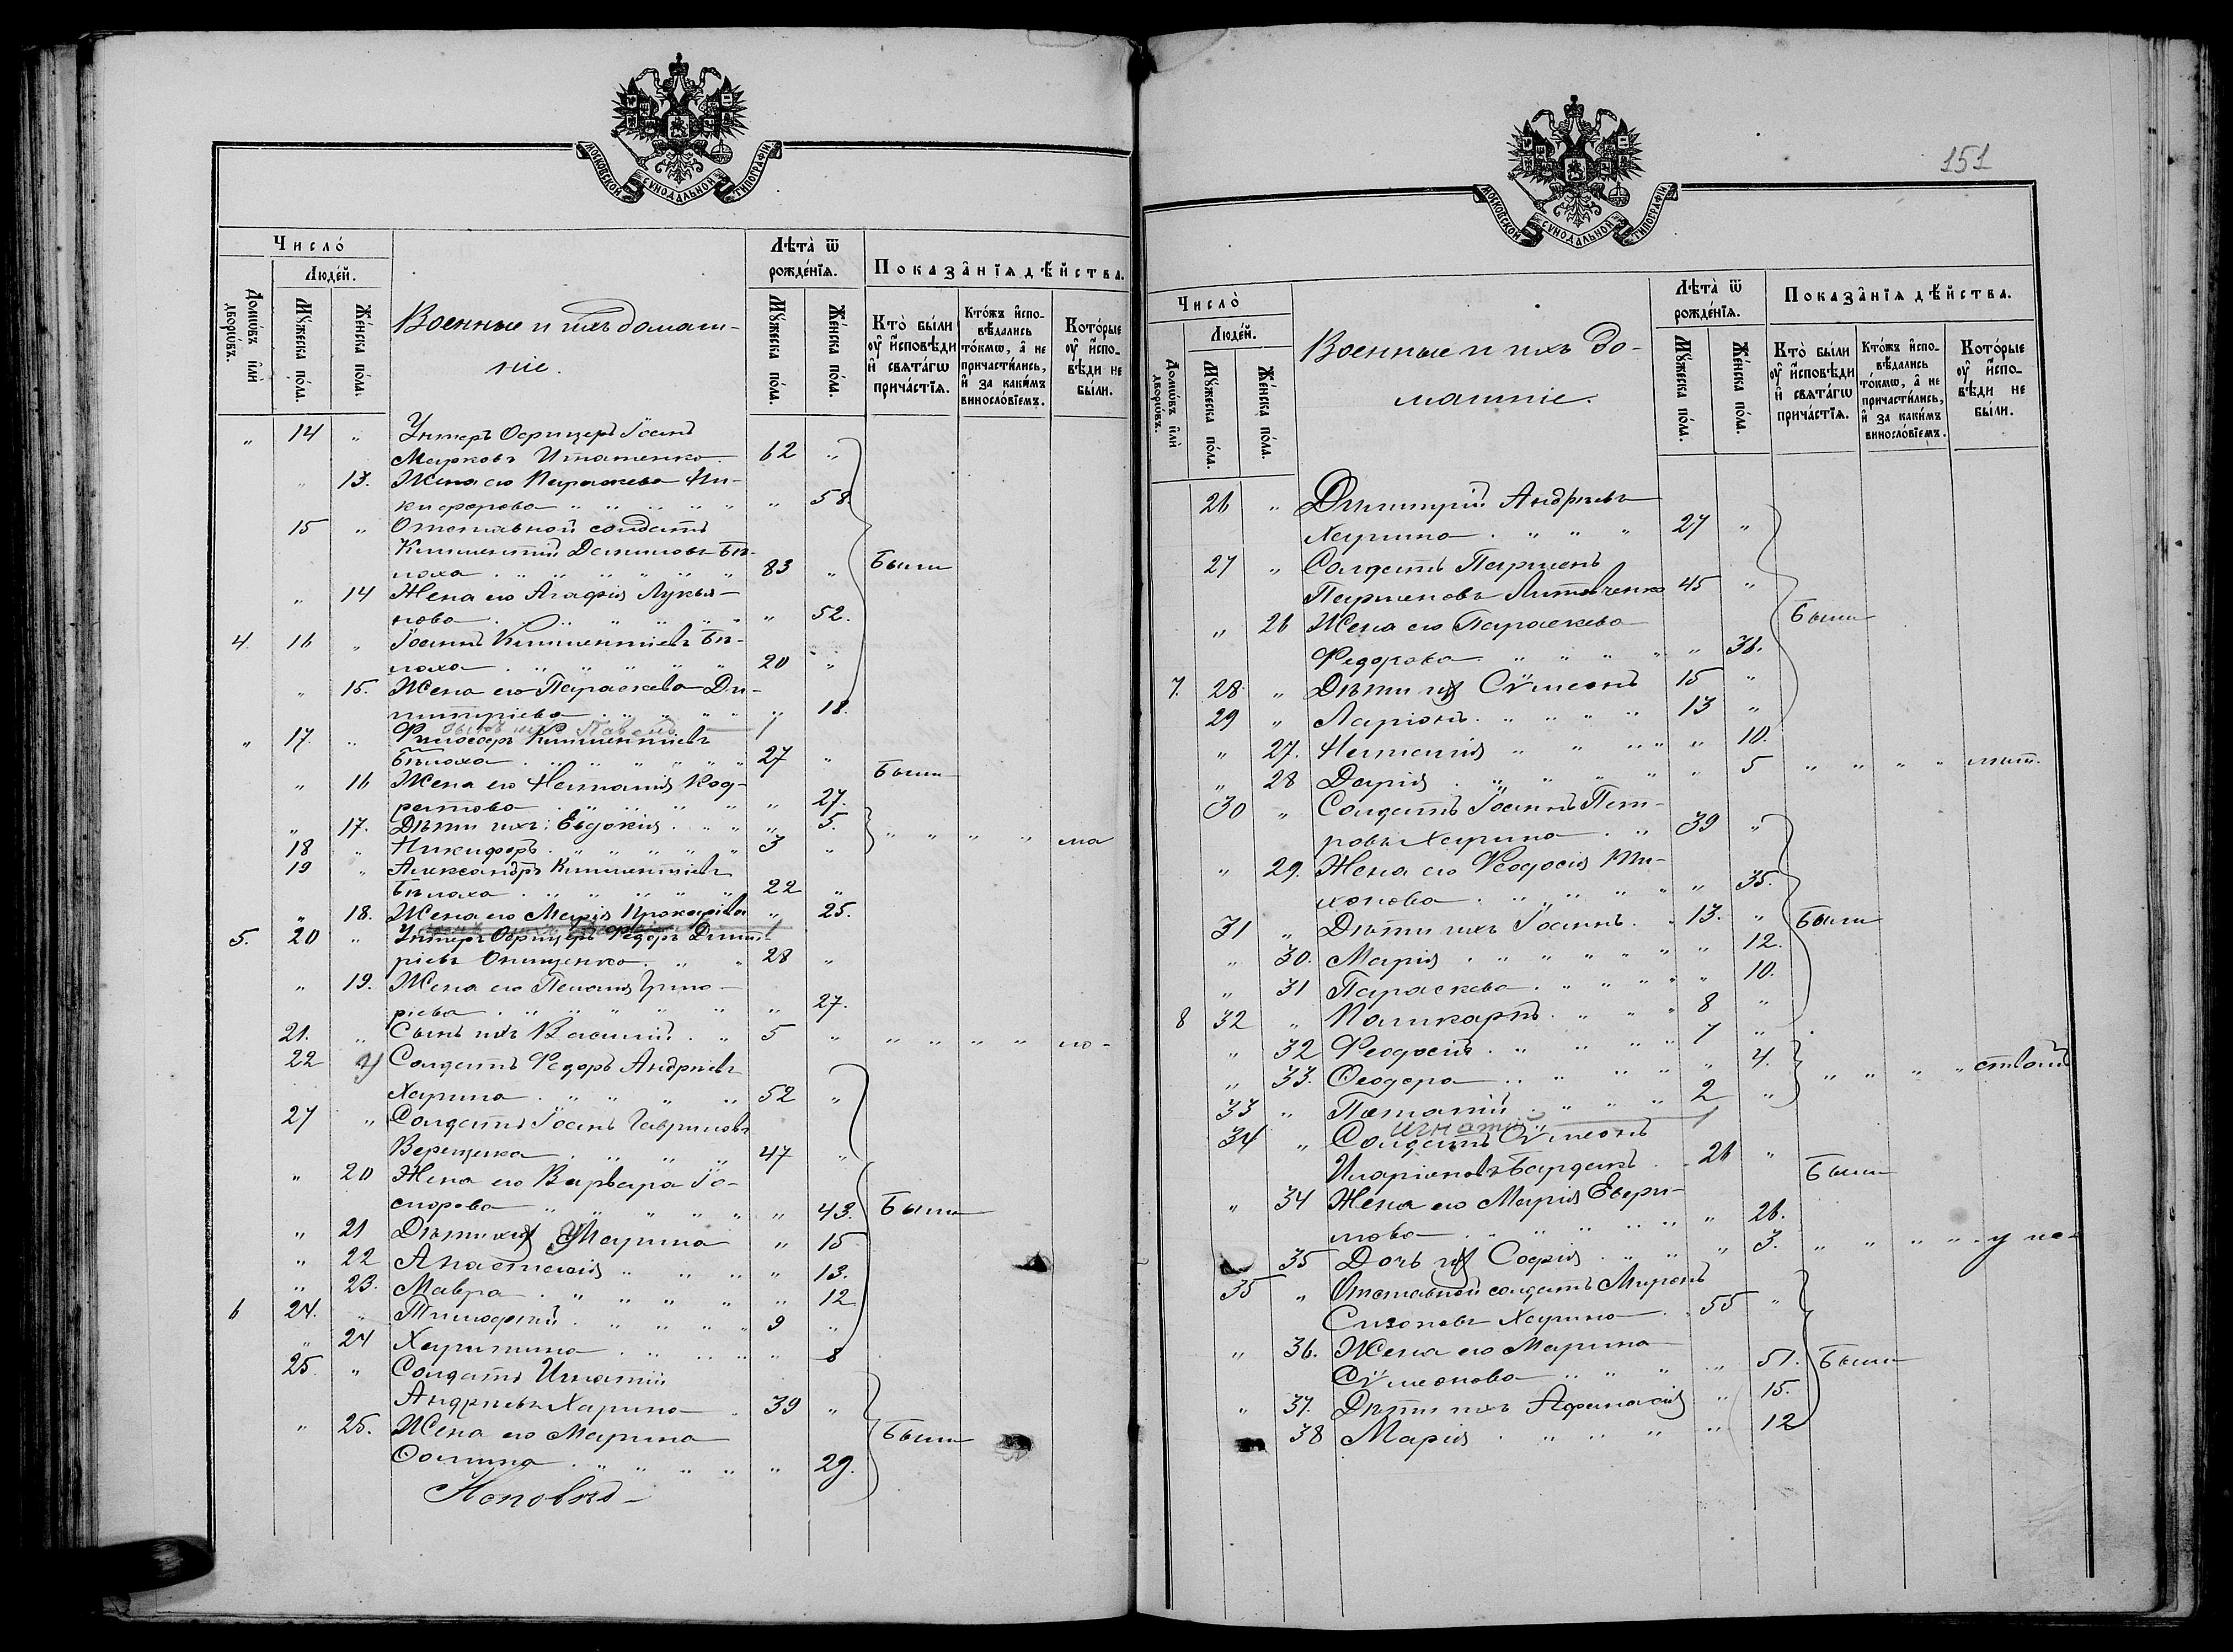 МОСКОВСКОЙ СѴНОДАЛЬНОЙ ТИПОГРАФІИ
Число̀
Людéй.
Домѡ́въ и҆лѝ дворѡ́въ.
Мꙋ́жеска по́ла.
Же́нска по́ла.
Военные и ихъ домаш-
ніе.
Лѣта̀ ѿ рождéнїѧ.
Мꙋ́жеска по́ла.
Же́нска по́ла.
Показа̂нїѧ дѣ́йства.
Кто̀ бы́ли оу҆ и҆сповѣ́ди и҆ свѧта́гѡ прича́стїѧ.
Кто́жъ и҆сповѣ́дались то́кмѡ, а҆ не причасти́лись, и҆ за каки́мъ винослóвїемъ.
Кото́рые оу҆ и҆сповѣ́ди не бы́ли.
„ 14 „ Унтеръ Офицеръ Іоанъ
Марковъ Игнатенко 62 „
„ 13. Жена его Параскева Ни-
кифорова „ 58.
15 „ Отставной солдатъ
Климентій Даниловъ Бѣ-
лоха 83 „ Были
„ 14 Жена его Агафія Лукья-
нова „ 52.
4 16 „ Іоаннъ Климентіевъ Бѣ-
лоха 20 „
„ 15. Жена его Параскева Ди-
митріева „ 18.
сынъ ихъ Павелъ 1
„ 17. „ Климентіевъ
Бѣлоха 27 „ Были
„ 16 Жена его Наталія Код-
ратова „ 27.
„ 17. Дѣти ихъ: Евдокія „ 5.
18 „ Никифоръ 3 „ „ „ „ „ ма
19 „ Александръ Климентіевъ
Бѣлоха 22 „
„ 18. Жена его Марія Прокофіева „ 25.
5. 20 „ Унтеръ Офицеръ Федоръ Димит-
ріевъ Онищенко 28 „
„ 19. Жена его Пелагія Григо-
ріева „ 27.
21. „ Сынъ ихъ Василій 5 „ „ „ „ „ ло-
22 „ Солдатъ Федоръ Андреевъ
Харина 52 „
27 „ Солдатъ Іоанъ Гавриловъ
Верещака 47 „
„ 20 Жена его Варвара Іо-
сифова „ 43. Были
„ 21 Дѣти ихъ Марина „ 15
„ 22 Анастасія „ 13.
„ 23. Мавра „ 12
6 24. „ Тимофей 9 „
„ 24 Харитина „ 8
25. „ Солдатъ Игнатій
Андреевъ Харина 39 „
„ 25. Жена его Марина Были
Фомина „ 29.
151
МОСКОВСКОЙ СѴНОДАЛЬНОЙ ТИПОГРАФІИ
Число̀
Людéй.
Домѡ́въ и҆лѝ дворѡ́въ.
Мꙋ́жеска по́ла.
Же́нска по́ла.
Военные и ихъ до-
машніе.
Лѣта̀ ѿ рождéнїѧ.
Мꙋ́жеска по́ла.
Же́нска по́ла.
Показа̂нїѧ дѣ́йства.
Кто̀ бы́ли оу҆ и҆сповѣ́ди и҆ свѧта́гѡ прича́стїѧ.
Кто́жъ и҆сповѣ́дались то́кмѡ, а҆ не причасти́лись, и҆ за каки́мъ винослóвїемъ.
Кото́рые оу҆ и҆сповѣ́ди не бы́ли.
26 „ Димитрій Андреевъ
Харина 27 „
27 „ Солдатъ Парменъ
Парменовъ Литовченко 45 „
„ 26 Жена его Параскева Были
Федорова „ 36.
7. 28. „ Дѣти ихъ Сѵмеонъ 15 „
29 „ Ларіонъ 13 „
„ 27. Наталія „ 10.
„ 28 Дарія „ 5 „ „ „ „ лѣт.
30 „ Солдатъ Іоаннъ Пет-
ровъ Харина 39 „
„ 29. Жена его Феодосія Ти-
хонова „ 35.
31 „ Дѣти ихъ Іоаннъ 13. „ Были
„ 30. Марія „ 12.
„ 31 Параскева „ 10.
8 32 „ Поликарпъ 8 „
„ 32 Феодосія 7 „
„ 33. Феодора „ 4.
33 „ Потапій 2 „ „ „ „ „ ствомъ
Игнатій 1
34 „ Солдатъ Сѵмеонъ
Иларіоновъ Барданъ 26 „ Были
„ 34 Жена его Марія Еври-
мова „ 26.
35 Дочь ихъ Софія „ 3. „ „ „ „
35 „ Отставной солдатъ Миронъ
Сизоновъ Харина 55 „
„ 36. Жена его Марина
Сѵмеонова „ 51. Были
„ 37. Дѣти ихъ Афанасія „ 15.
38 Марія „ 12